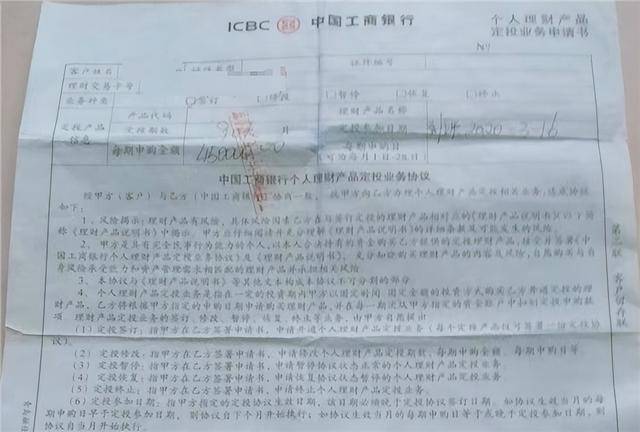 ICBC 中国工商银行
个人理财产品
定投业务申请书
№
客户姓名 证件类型 证件编号
理财交易卡号
业务种类 签订 修改 暂停 恢复 终止
定投产品信息 产品代码 理财产品名称
定投期数 月 定投参加日期 2020-3-16
每期申购金额 每期申购日
(可为每月1日-28日)
中国工商银行个人理财产品定投业务协议
经甲方(客户)与乙方(中国工商银行)协商一致,就甲方向乙方办理个人理财产品定投相关业务,达成协议
如下:
1、风险揭示:理财产品有风险,具体风险因素乙方在与签订定投的理财产品相对应的《理财产品说明书》(以下简
称《理财产品说明书》)中揭示。甲方应仔细阅读并充分理解《理财产品说明书》的详细条款及可能发生的风险。
2、甲方是具有完全民事行为能力的个人,以本人合法持有的资金购买乙方提供的定投理财产品,接受并签署《中
国工商银行个人理财产品定投业务协议》及《理财产品说明书》,充分知晓购买理财产品的内容及风险,自愿购买与自
身风险承受能力和资产管理需求相匹配的理财产品并承担相关风险。
3、本协议与《理财产品说明书》等其他文本构成本协议不可分割的部分。
4、个人理财产品定投业务是指在一定的投资期内甲方以固定时间、固定金额的投资方式购买乙方开通定投的理
财产品,乙方将根据甲方指定的申购日期申请购买理财产品,并在每一期次从甲方指定的资金账户中扣划定投申购款
项。理财产品定投业务的签订、修改、暂停、恢复、终止等业务,由甲方自愿提出。
(1)定投签订:指甲方在乙方签署申请书,申请开通个人理财产品定投业务(每个定投产品仅可签署一份定投协
议)。
(2)定投修改:指甲方在乙方签署申请书,申请修改个人理财产品定投期数、每期申购金额、每期申购日等。
(3)定投暂停:指甲方在乙方签署申请书,申请暂停协议状态正常的个人理财产品定投业务。
(4)定投恢复:指甲方在乙方签署申请书,申请恢复协议状态暂停的个人理财产品定投业务。
(5)定投终止:指甲方在乙方签署申请书,申请终止个人理财产品定投业务。
(6)定投参加日期:指甲方指定的定投协议生效日期,该日期必须晚于定投协议签订日期。如协议生效当月的每
期申购日早于定投参加日期,则协议自下个月开始执行;如协议生效当月的每期申购日等于或晚于定投参加日期,则
协议自当月开始执行。
第二联 客户留存联